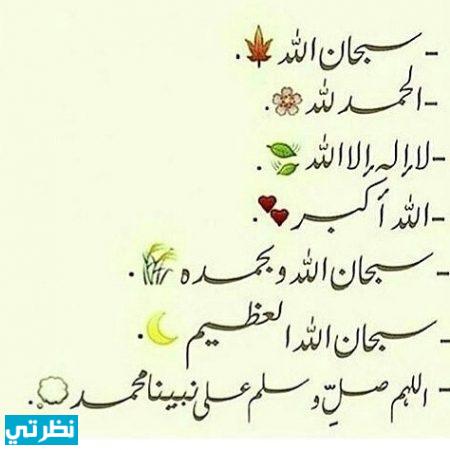 - سبحان الله 🍁.
- الحمد لله 🌸.
- لا إله إلا الله 🍃.
- الله أكبر 💕.
- سبحان الله وبحمده 🌾.
- سبحان الله العظيم 🌙.
- اللهم صلِّ وسلم على نبينا محمد 💭.
نظرتي